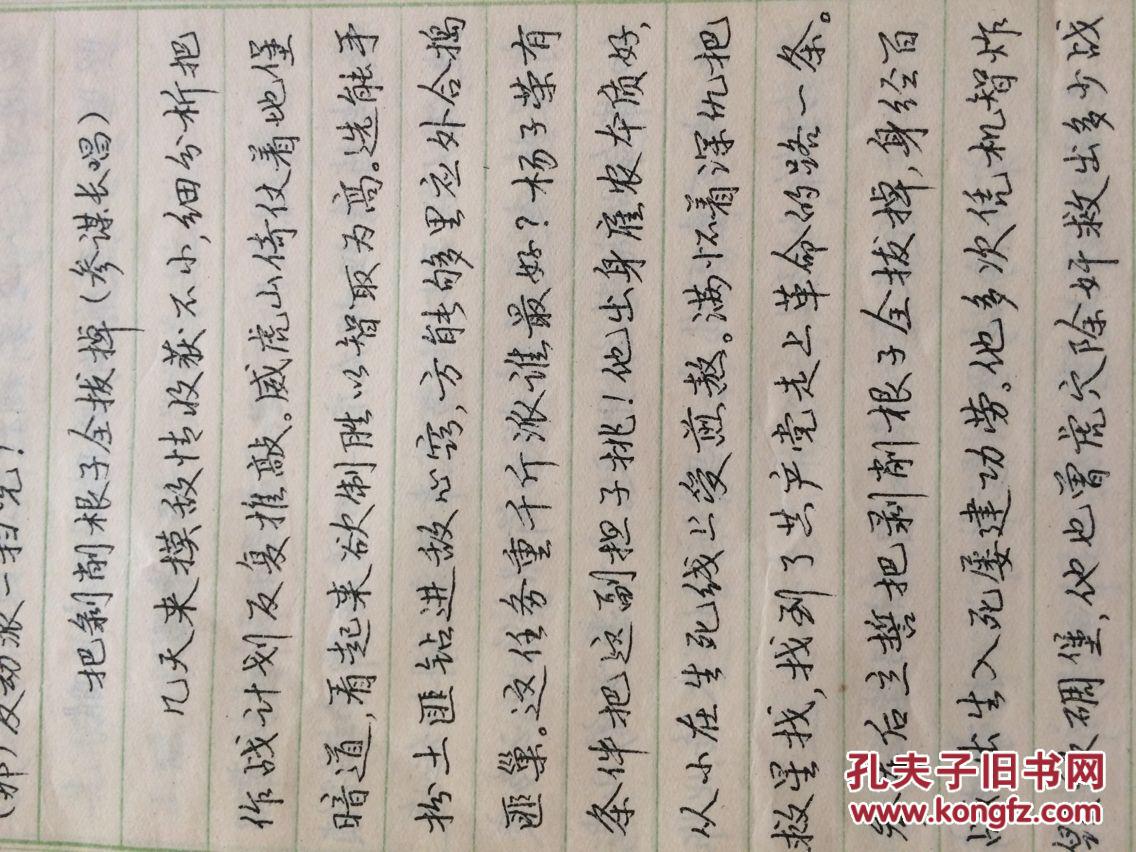 反动派一扫光!
把剥削根子全拔掉(参谋长唱)
几天来摸敌情收获不小,细分析把
作战计划反复推敲。威虎山倚仗着地堡
暗道,看起来欲制胜以智取为高。选能手
扮土匪钻进敌心窍,方能够里应外合捣
匪巢。这任务重千斤派谁最好?杨子荣有
条件把这副担子挑!他出身雇农本质好,
从小在生死线上受煎熬。满怀着深仇把
救星找,找到了共产党走上革命的路一条。
后立誓把剥削根子全拔掉,身经百
出生入死屡建功劳。他多次凭机智炸
碉堡,他也曾虎穴除奸救出多少战
孔夫子旧书网
www.kongfz.com